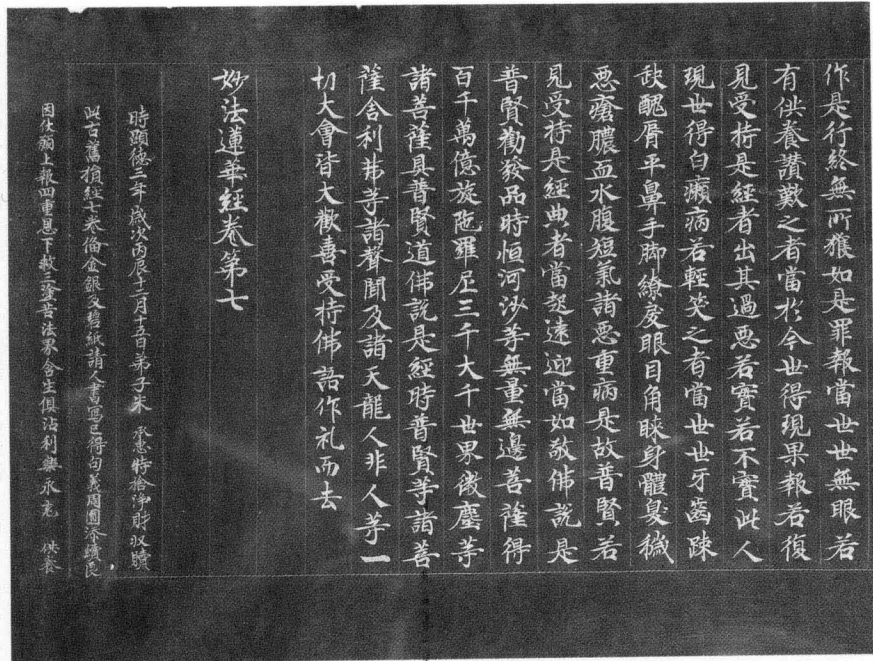 作是行終無所獲如是罪報當世世無眼若
有供養讚歎之者當於今世得現果報若復
見受持是經者出其過惡若實若不實此人
現世得白癩病若輕笑之者當世世牙齒踈
缺醜脣平鼻手脚繚戾眼目角睞身體臭穢
惡瘡膿血水腹短氣諸惡重病是故普賢若
見受持是經典者當起遠迎當如敬佛說是
普賢勸發品時恒河沙等無量無邊菩薩得
百千萬億旋陁羅尼三千大千世界微塵等
諸菩薩具普賢道佛說是經時普賢等諸菩
薩舍利弗等諸聲聞及諸天龍人非人等一
切大會皆大歡喜受持佛語作礼而去
妙法蓮華經卷第七
時顯德三年歲次丙辰十二月十五日弟子朱承惠特捨淨財收贖
此古舊損經七卷俻金銀及碧紙請人書寫已得句義周圓添續良
因伏願上報四重恩下救三塗苦法界含生俱沾利樂永充供養